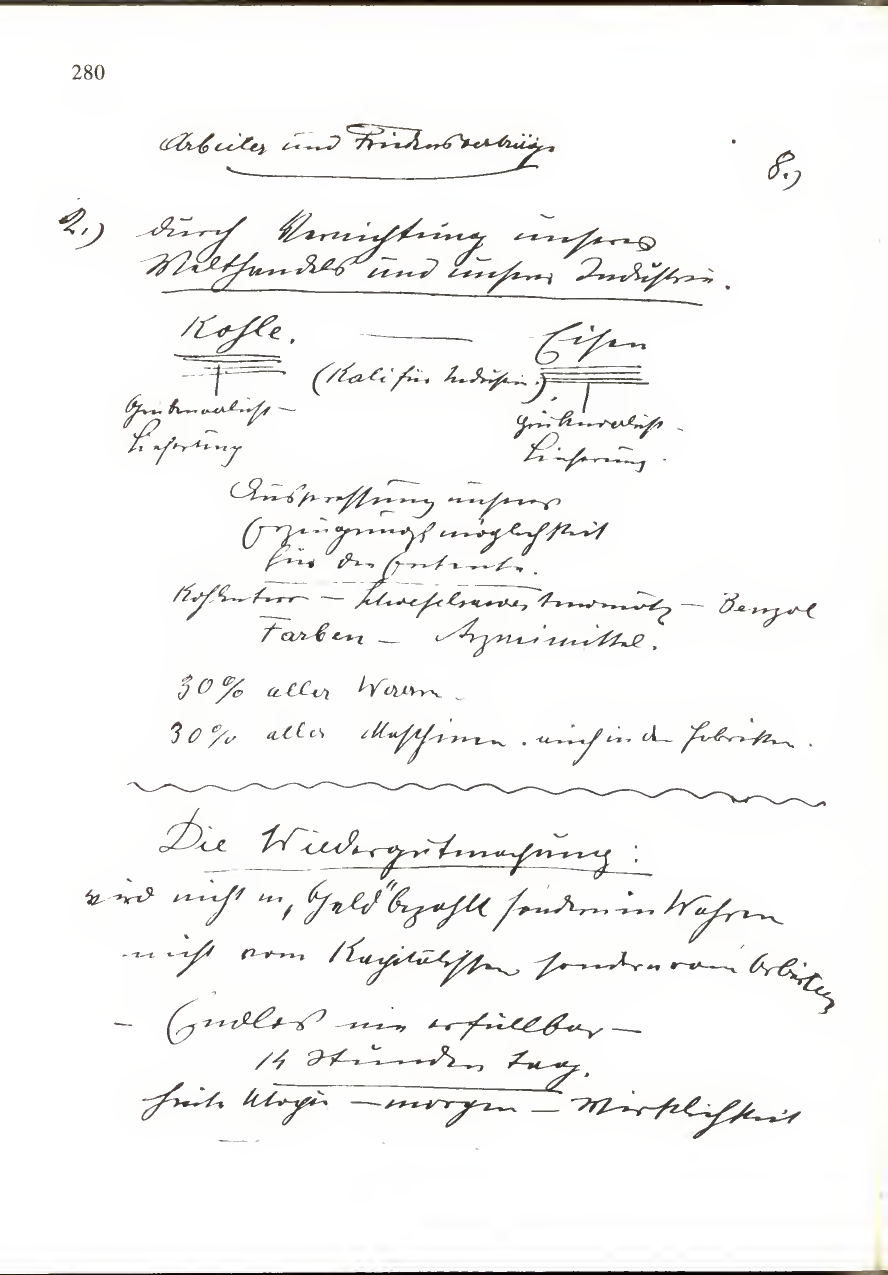 280
Arbeiter und Friedensverträge
8.)
2.) durch Vernichtung unseres
Welthandels und unserer Industrie.
Kohle. — Eisen
(Kali für Industrie.)
Grubenverlust – Grubenverlust –
Lieferung Lieferung.
Auspressung unserer
Erzeugungsmöglichkeit
für die Entente.
Kohlenteer – schwefelsaures Ammoniak – Benzol
Farben – Arzneimittel.
30% aller Waren –
30% aller Maschinen. auch in den Fabriken.
Die Wiedergutmachung:
wird nicht in „Geld" bezahlt sondern in Wahren
nicht vom Kapitalisten sondern vom Arbeiter
– Endlos nie erfüllbar –
14 Stunden Tag.
heute Utopie – morgen – Wirklichkeit